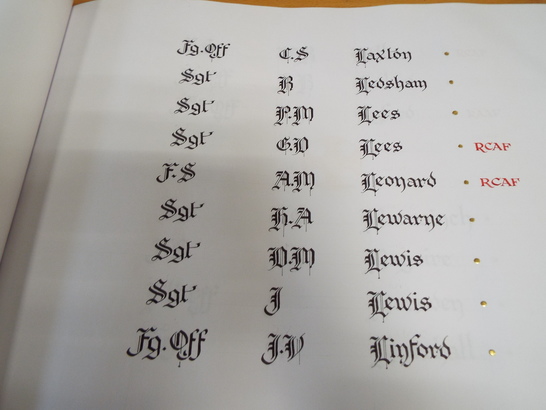 Fg.Off C.S Laxton
Sgt R Ledsham
Sgt F.M Lees
Sgt G.D Lees RCAF
F.S A.M Leonard RCAF
Sgt H.A Lewarne
Sgt D.M Lewis
Sgt J Lewis
Fg.Off J.V Linford